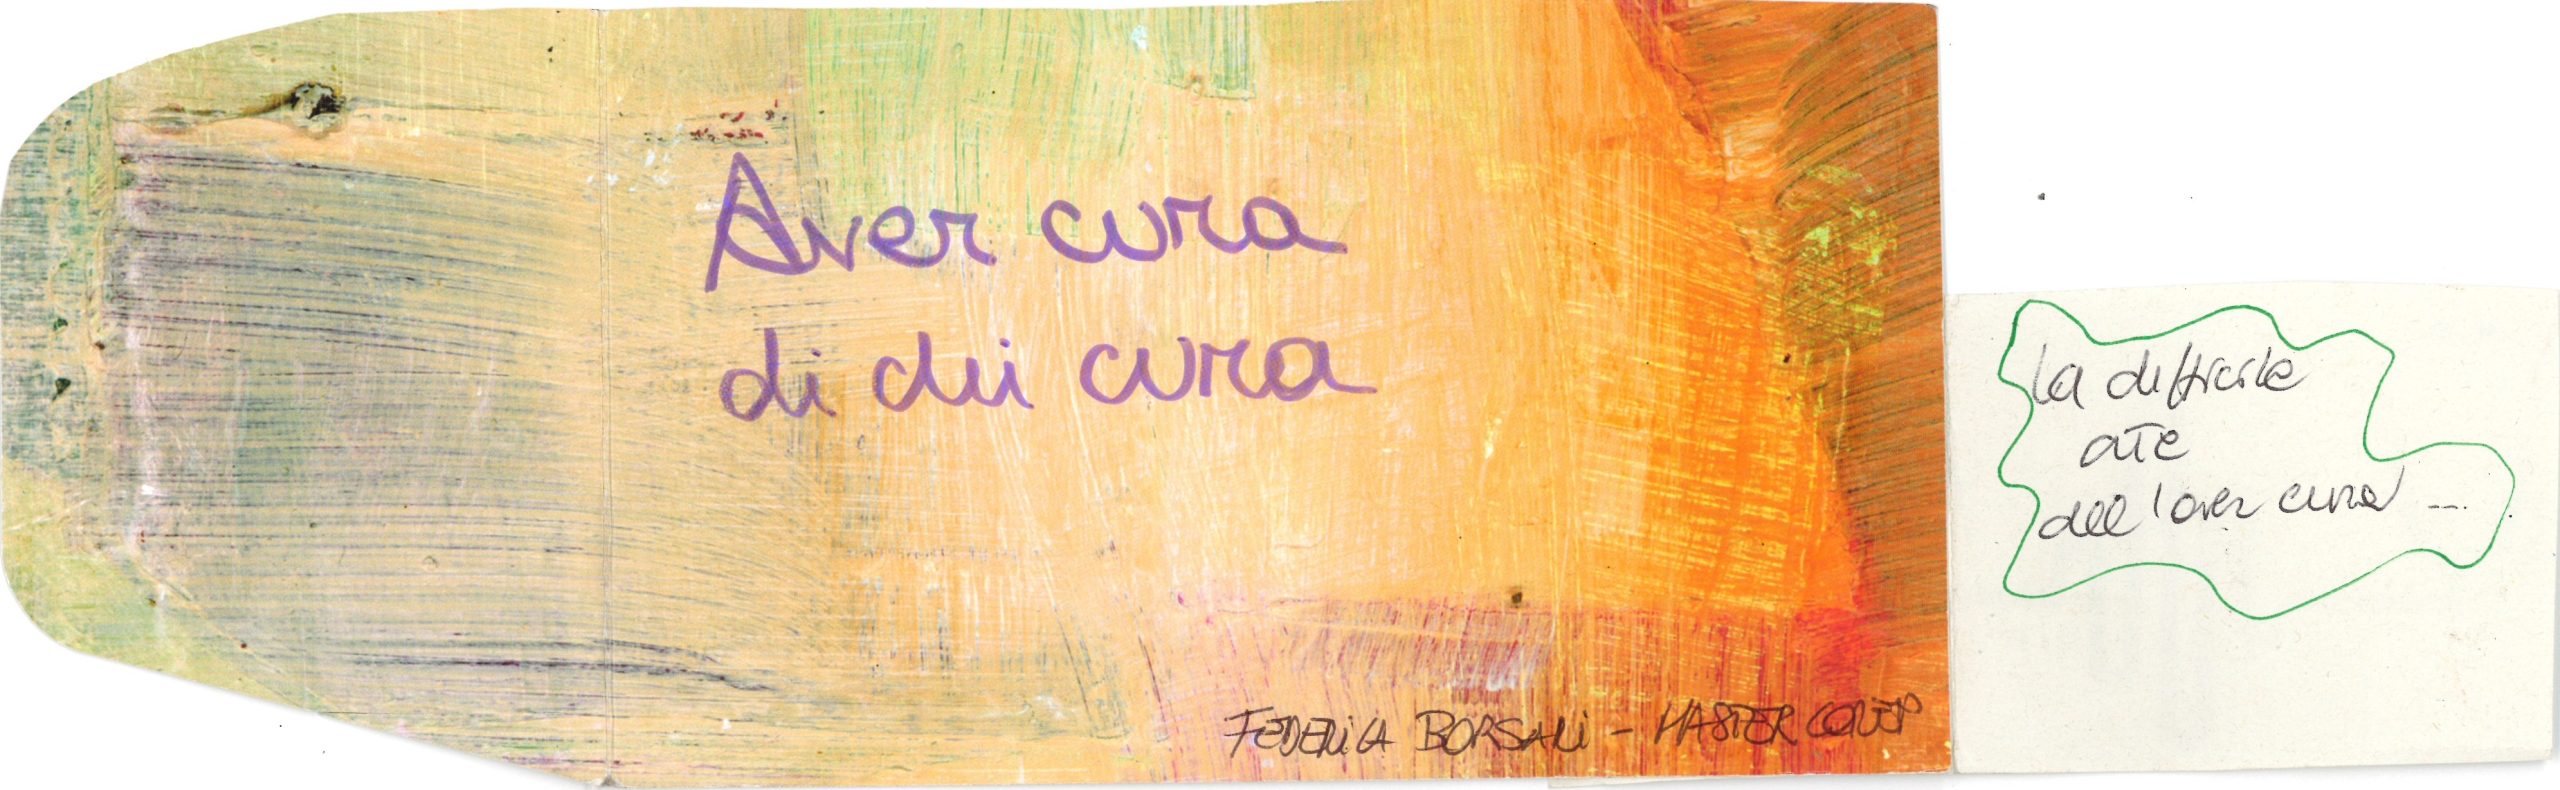 Aver cura
di chi cura
FEDERICA BORSANI - MASTER COREP
la difficile
arte
dell'aver cura ...